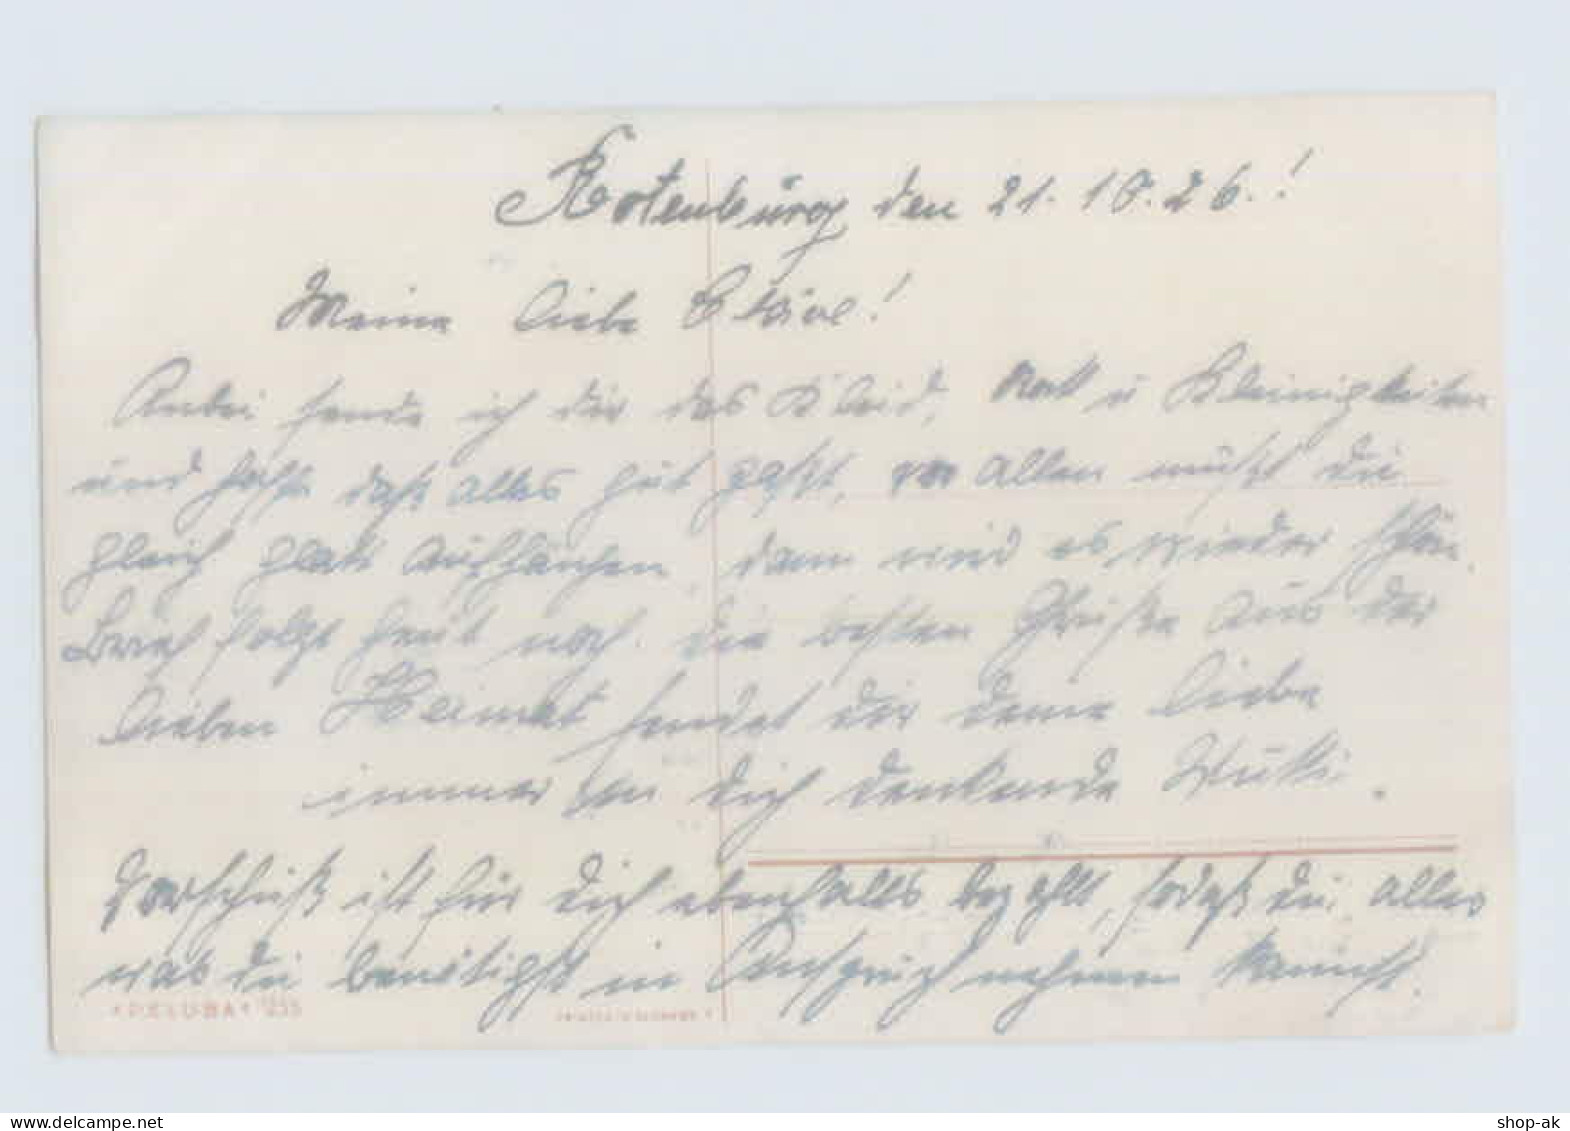 Rotenburg den 21.10.26.!
Meine liebe !
Anbei sende ich dir das Kleid, Rock u Kleinigkeiten
und hoffe daß alles gut paßt, vor allen mußt du
gleich glatt aufhängen, dann wird es wieder schön.
Brief folgt heut noch. die besten Grüße aus der
lieben Heimat sendet dir deine liebe
immer an dich denkende
Vorschuß ist für dich ebenfalls bezahlt, sodaß du alles
was du benötigst in Anspruch nehmen kannst.
*PELUBA*
shop-ak